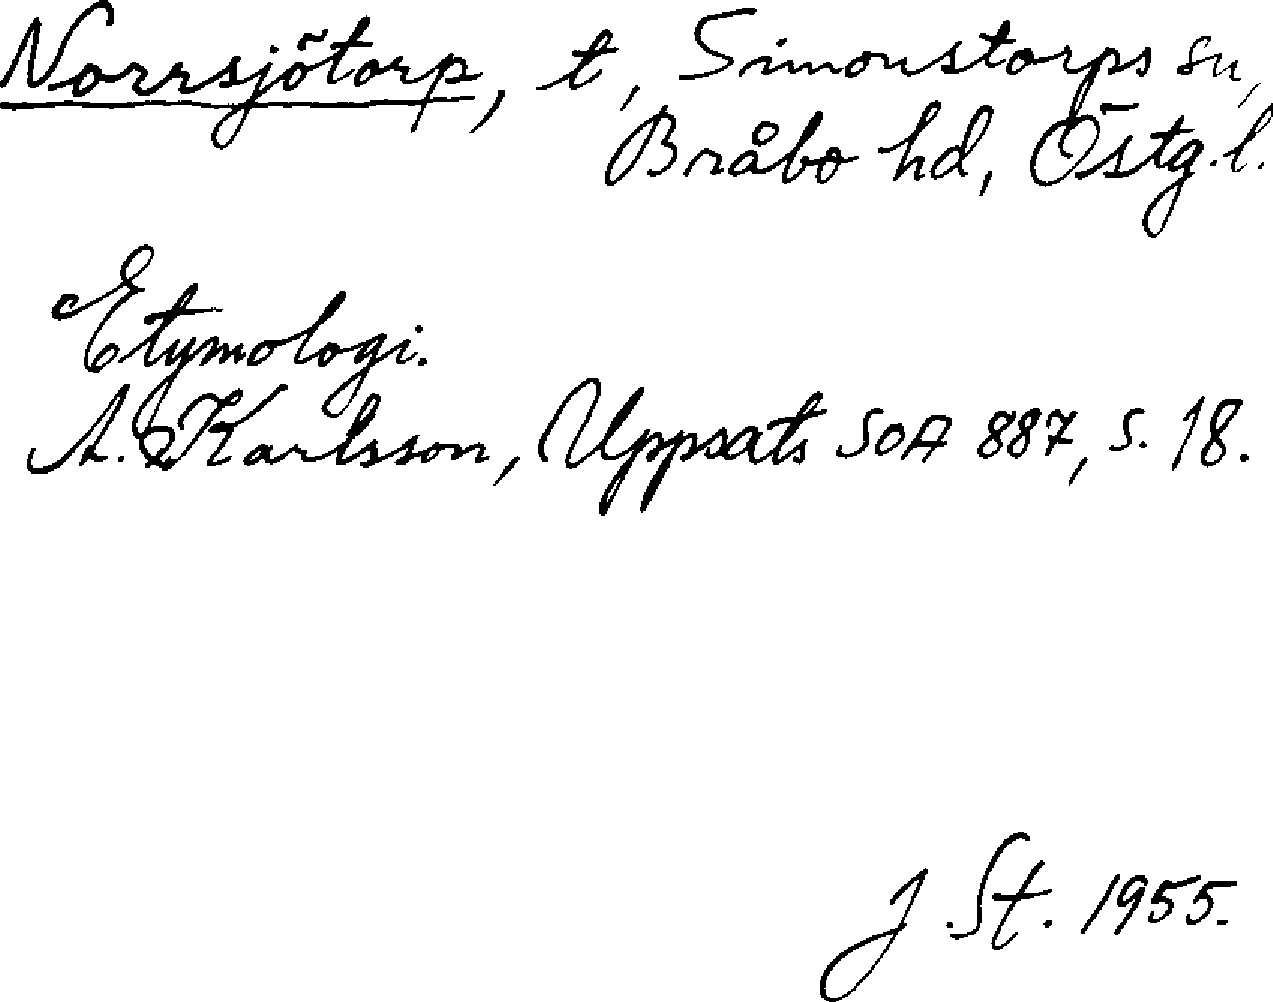 Norrsjötorp, t, Simonstorps sn,
Bråbo hd, Östg.l.
Etymologi.
A. Karlsson, Uppsats SOA 887, s. 18.
J. St. 1955.